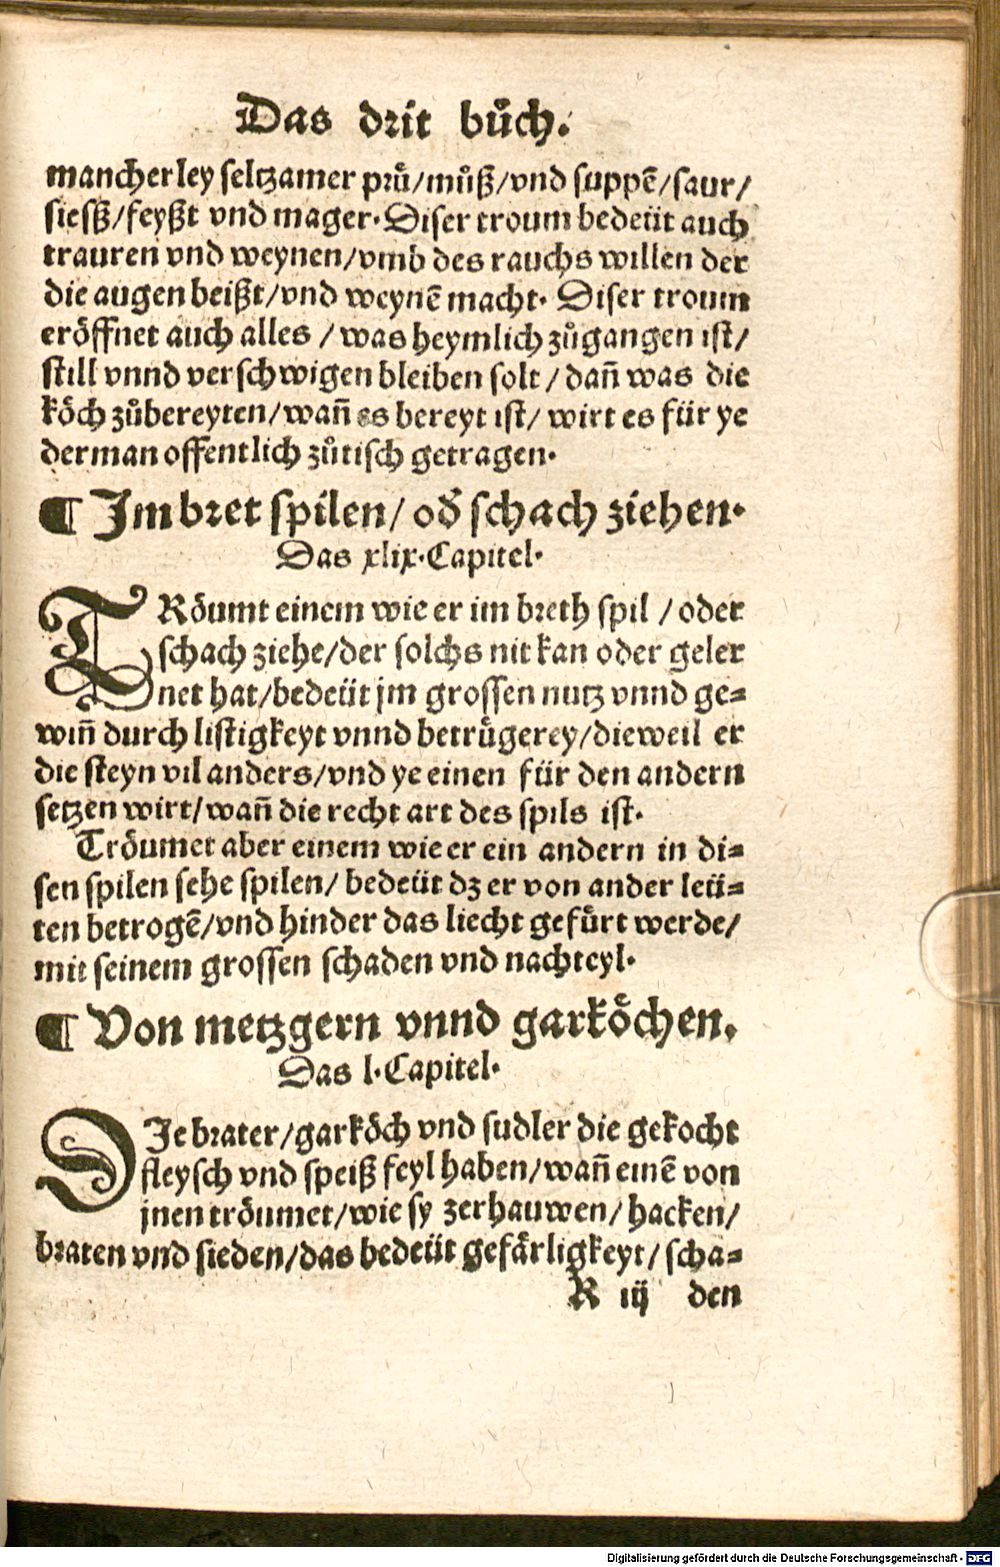 Das drit bůch.
mancherley seltzamer prů/můß/vnd suppē/saur/
siesß/feyßt vnd mager. Diser troum bedeüt auch
trauren vnd weynen/vmb des rauchs willen der
die augen beißt/vnd weynē macht. Diser troum
eröffnet auch alles / was heymlich zůgangen ist/
still vnnd verschwigen bleiben solt / dañ was die
köch zůbereyten/wañ es bereyt ist/ wirt es für ye
derman offentlich zůtisch getragen.
¶ Im bret spilen/ od̃ schach ziehen.
Das xlix. Capitel.
TRöumt einem wie er im breth spil / oder
schach ziehe/der solchs nit kan oder geler
net hat/bedeüt jm grossen nutz vnnd ge=
wiñ durch listigkeyt vnnd betrügerey/dieweil er
die steyn vil anders/vnd ye einen für den andern
setzen wirt/wañ die recht art des spils ist.
Tröumet aber einem wie er ein andern in di=
sen spilen sehe spilen/ bedeüt dz er von ander leü=
ten betrogē/vnd hinder das liecht gefůrt werde/
mit seinem grossen schaden vnd nachteyl.
¶ Von metzgern vnnd garköchen.
Das l. Capitel.
DIe brater/garköch vnd sudler die gekocht
fleysch vnd speiß feyl haben/wañ einē von
jnen tröumet/wie sy zerhauwen/ hacken/
braten vnd sieden/das bedeüt gefärligkeyt/ scha=
R iij den
Digitalisierung gefördert durch die Deutsche Forschungsgemeinschaft - DFG